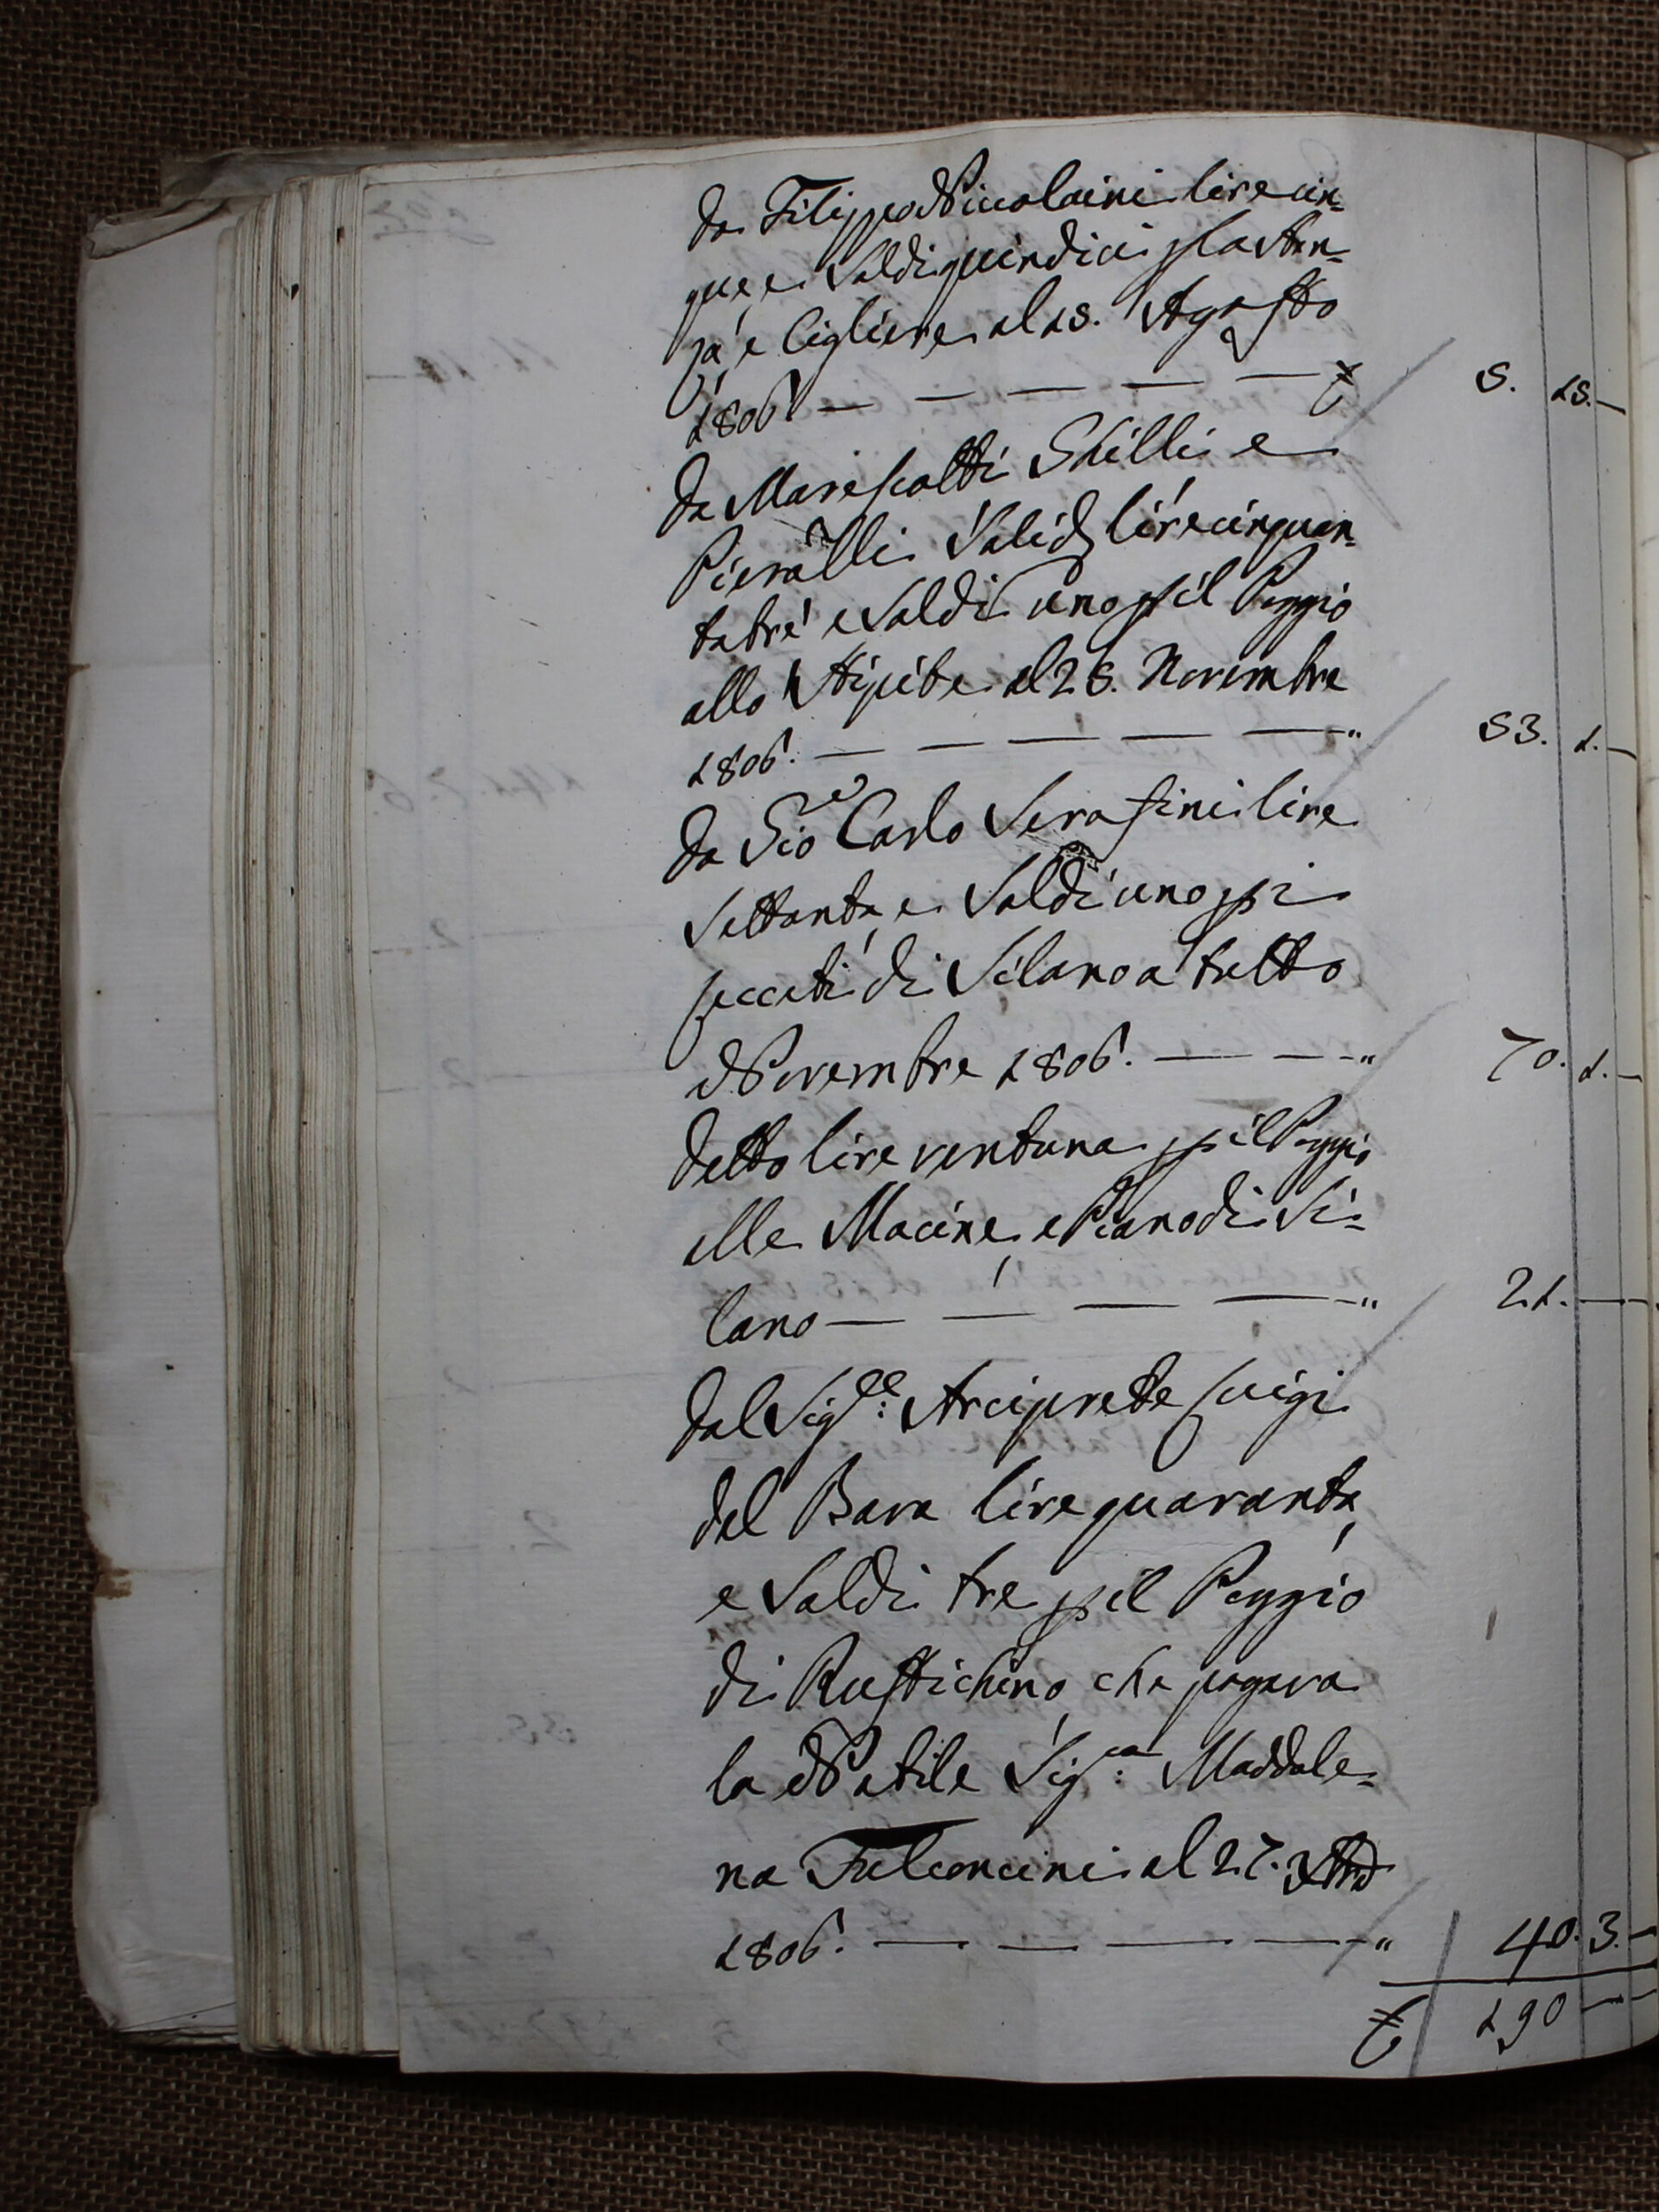 da Filippo Niccolaini lire cin=
que, e Soldi quindici p la Stan=
ga, e Cigliere al 15. Agosto
1806. — — — — — £ 5. 15. —
da Marescotti Stilli e
Pieralli Solid lire cinquan=
tatre e Soldi uno p il Poggio
allo Stipite al 28. Novembre
1806. — — — — — " 53. 1. —
da Gio Carlo Serafini lire
Settanta, e Soldi uno p i
seccati di Silano a tutto
Novembre 1806. — — " 70. 1. —
detto lire ventuna p il Poggio
alle Macine, e Piano di Si=
lano — — — — " 21. — —
dal Sig.re Arciprete Luigi
del Bava lire quaranta,
e Soldi tre p il Poggio
di Rustichino, che pagava
la Nobile Sig.ra Maddale=
na Falconcini al 27. Xbre
1806. — — — — " 40. 3. —
£ 190 — —